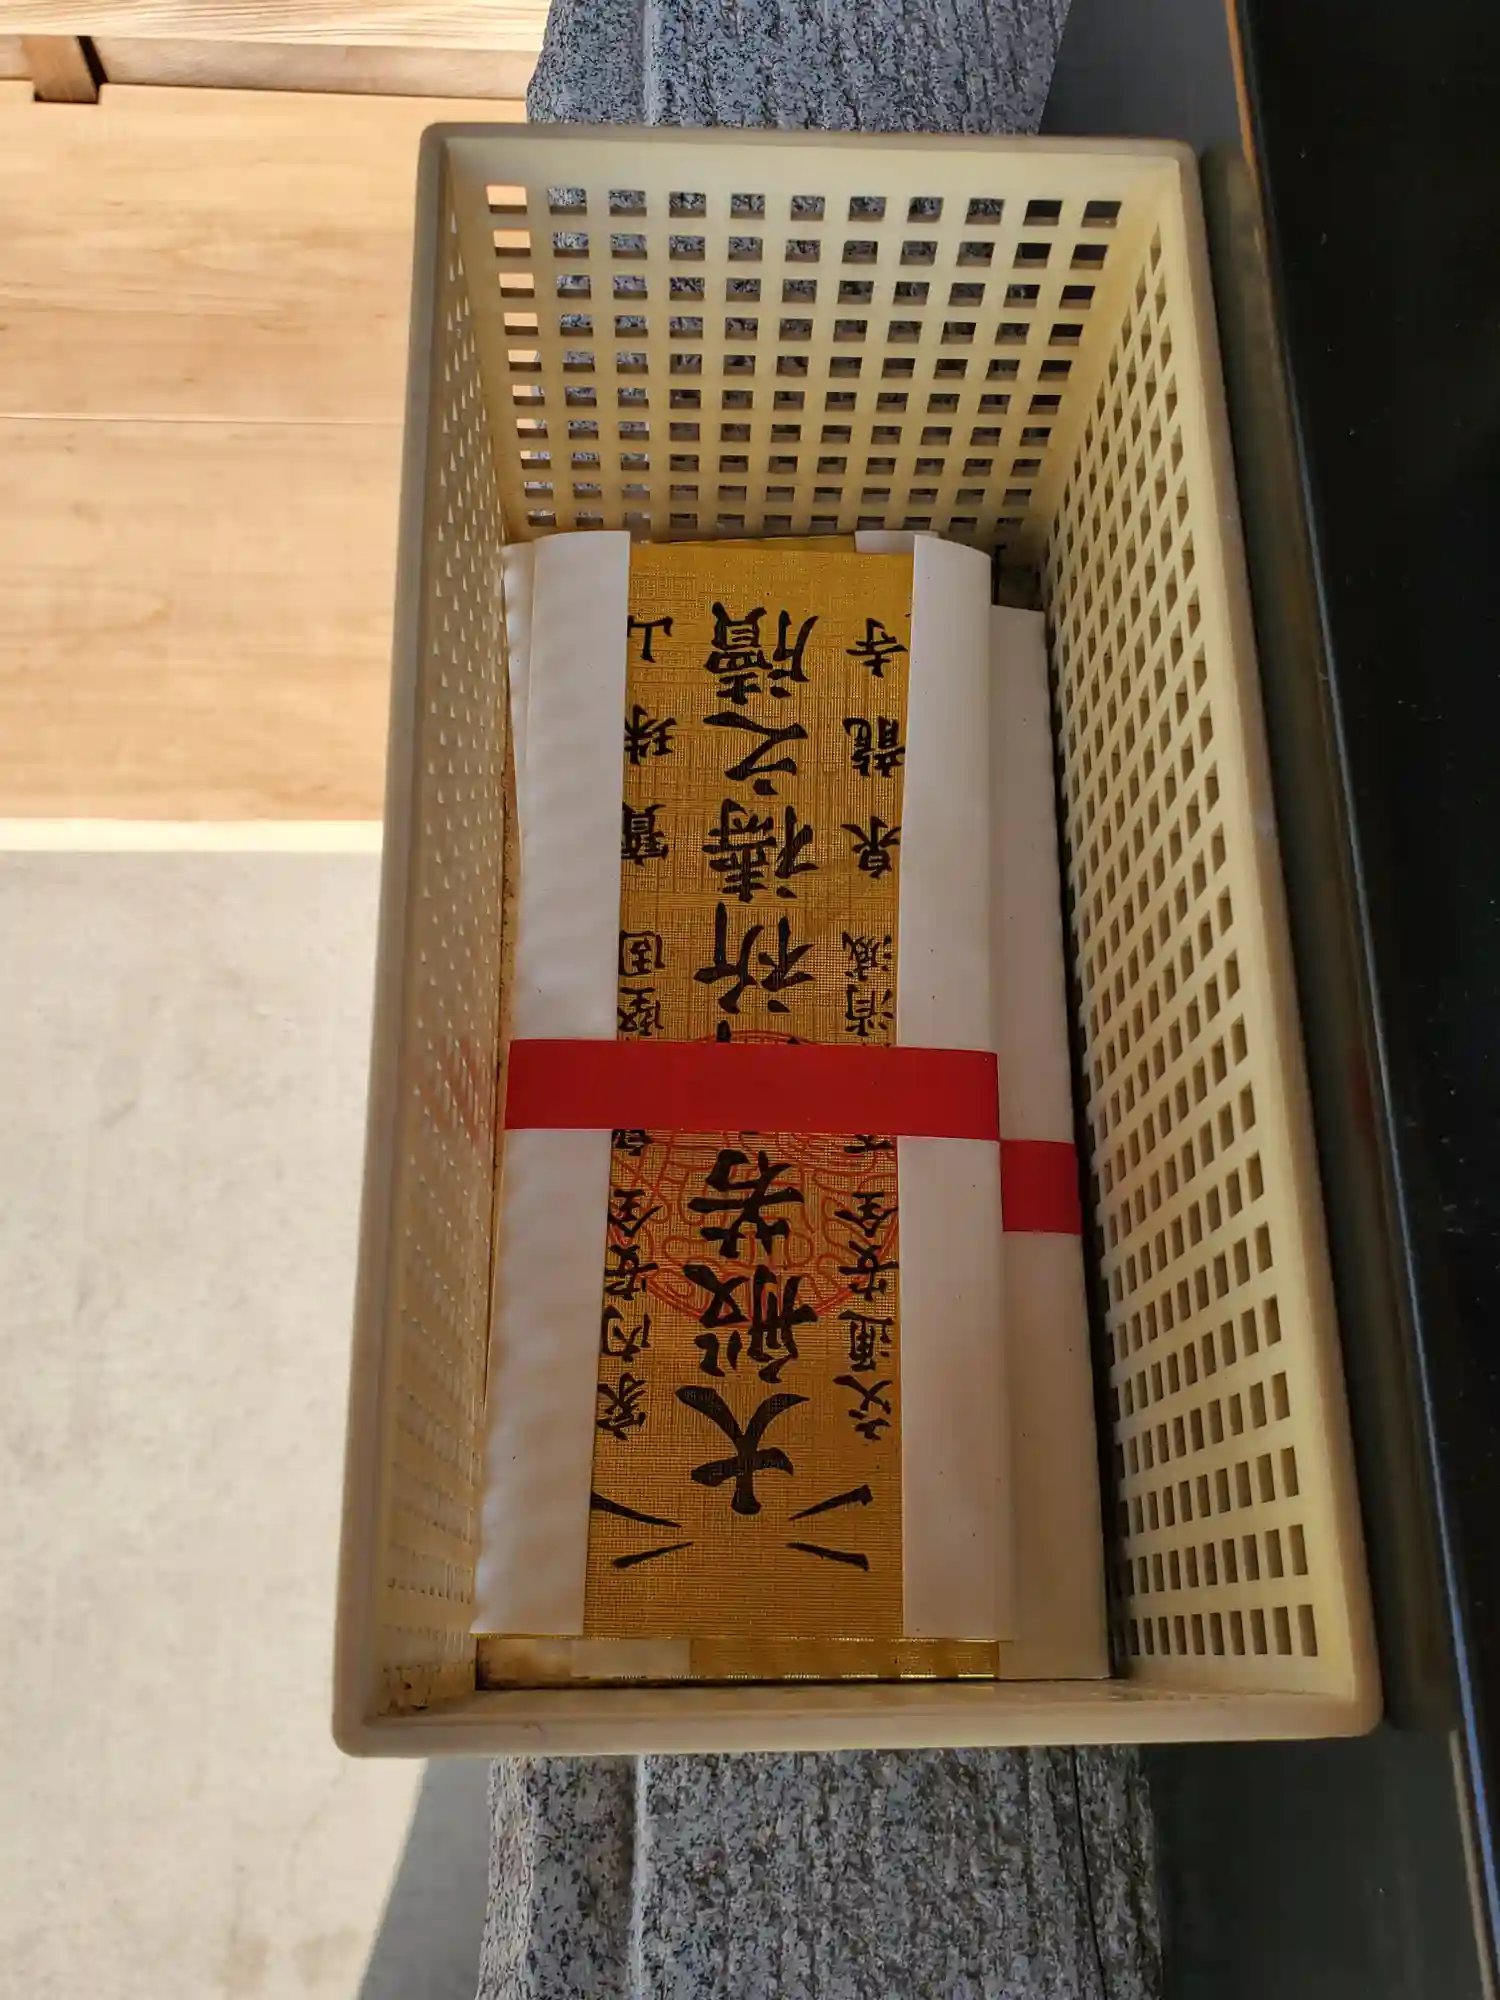 家内安全 堅固 寶珠山
大般若 祈禱之牘
交通安全 消滅 泉龍寺